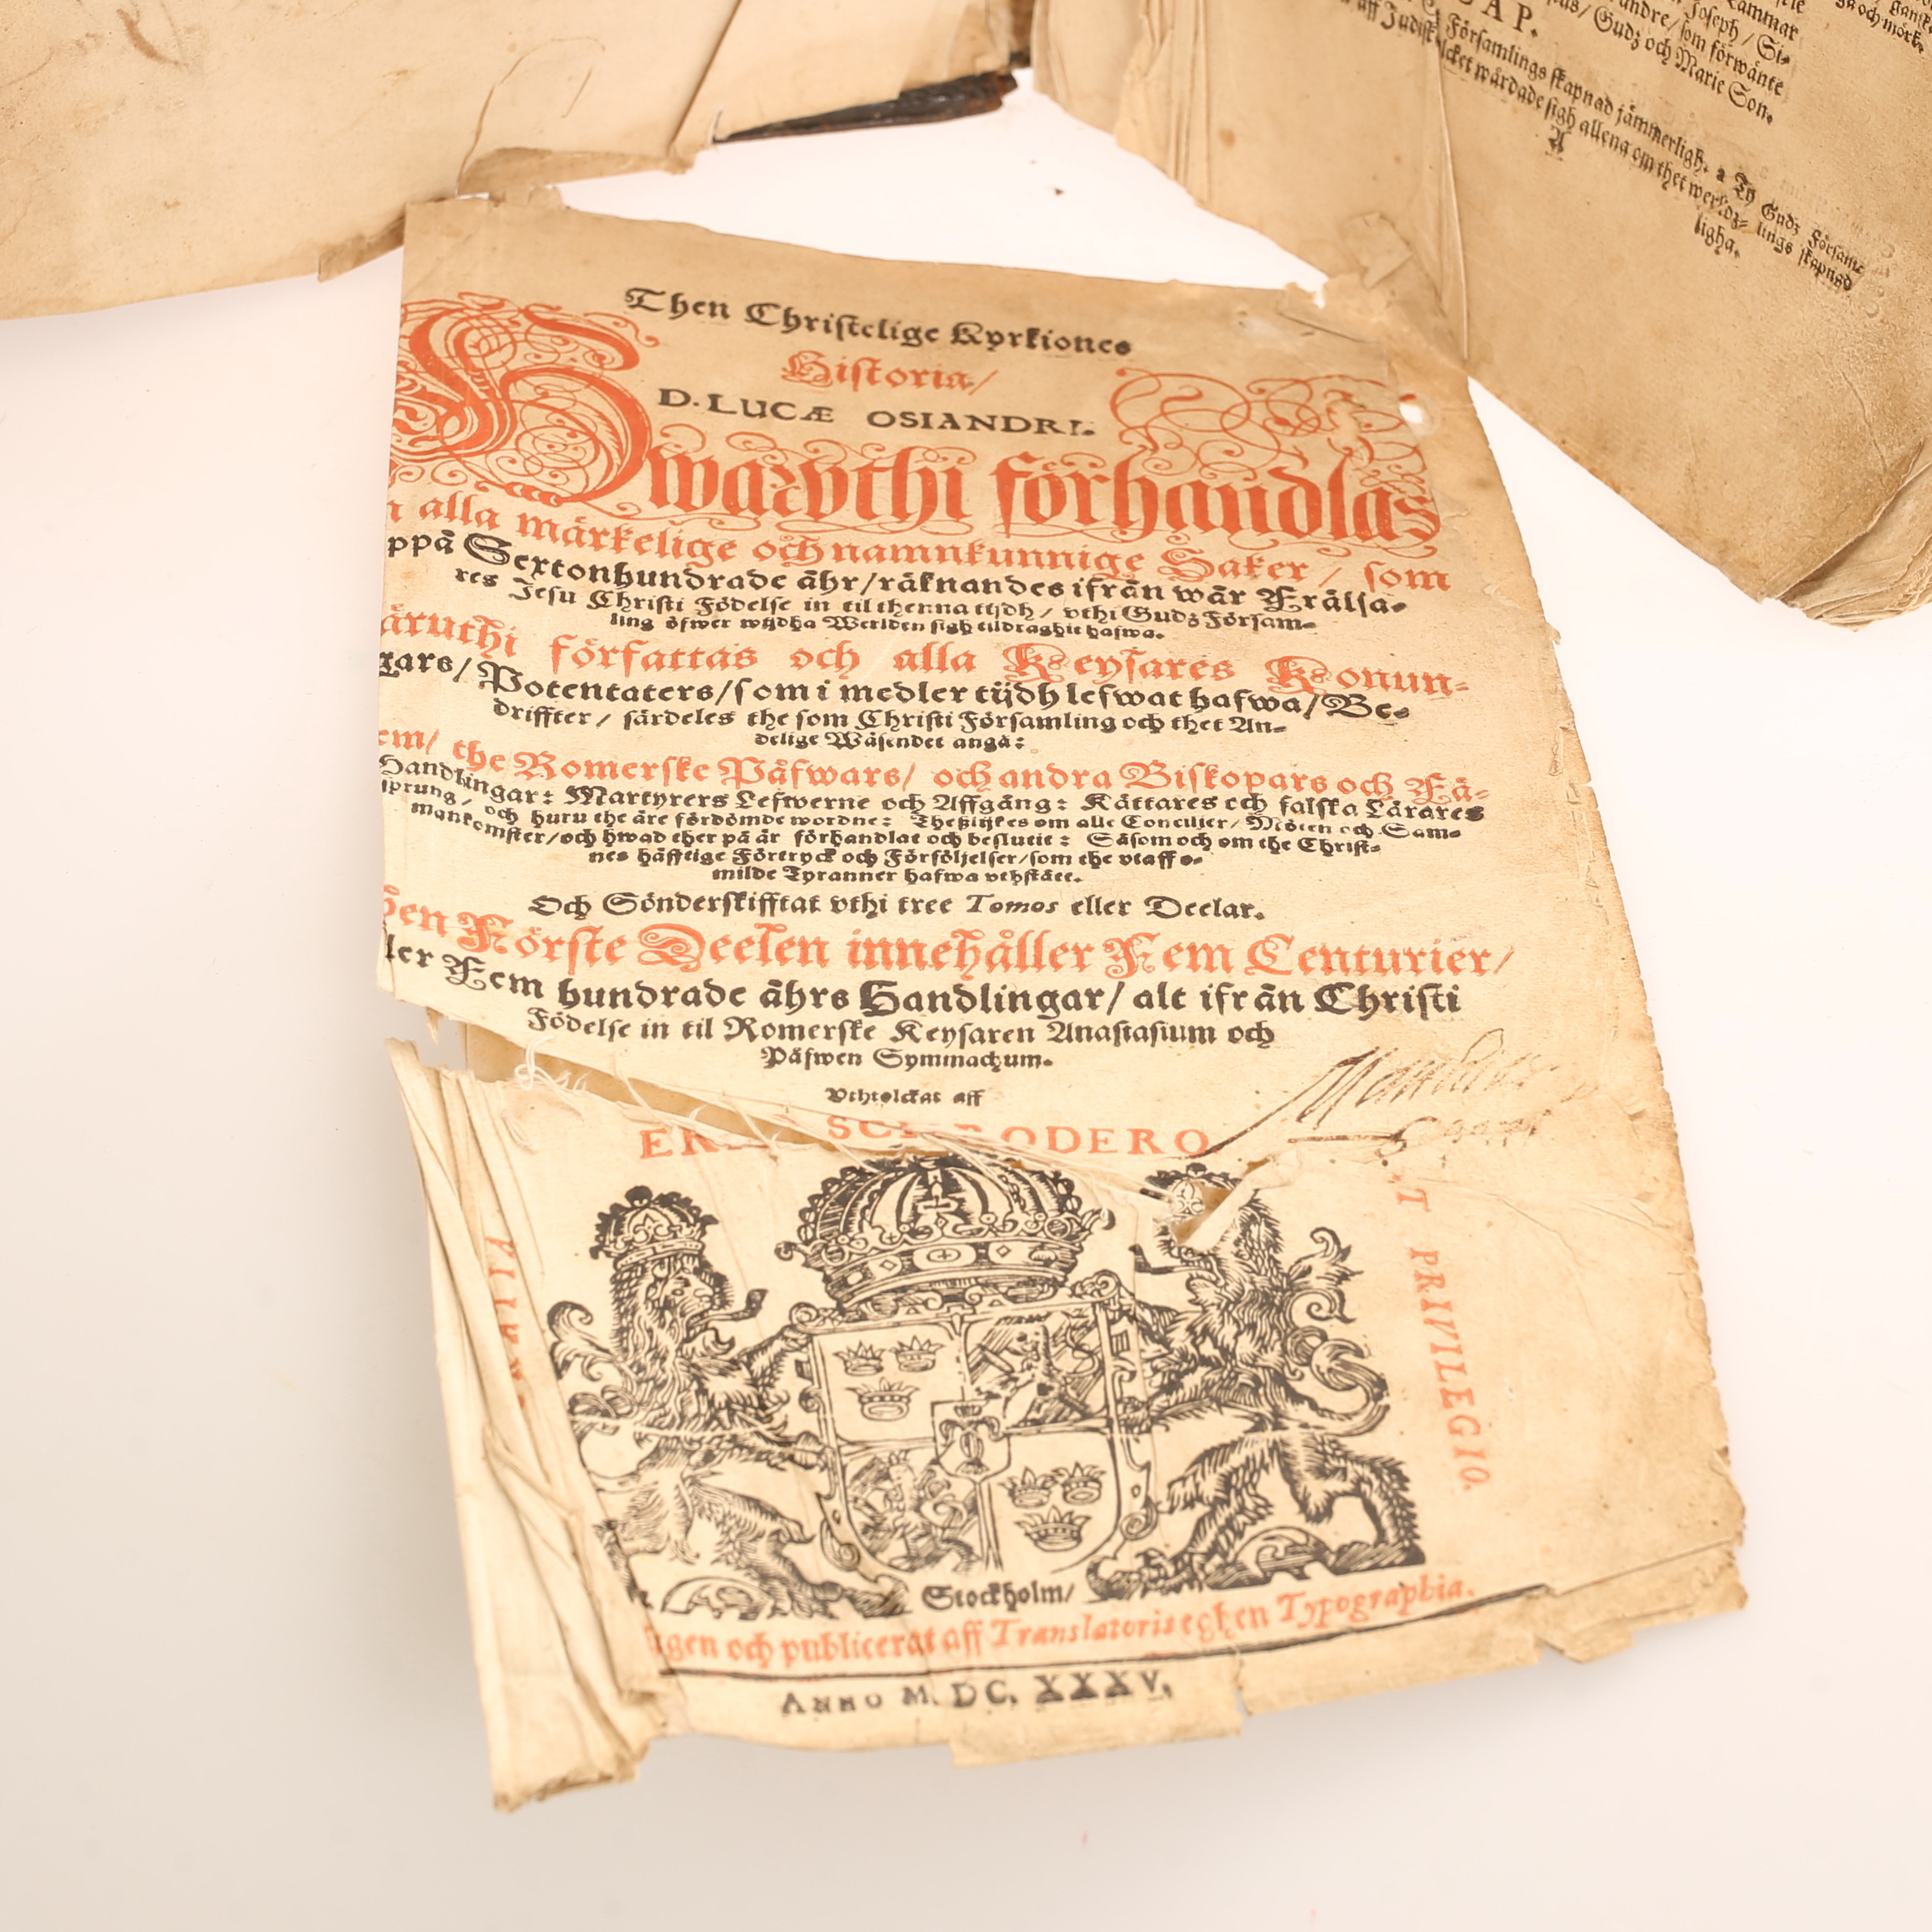 Then Christelige Kyrkiones
Historia/
D. LUCÆ OSIANDRI.
Hwarvthi förhandlas
alla märkelige och namnkunnige Saker / som
ppå Sextonhundrade åhr/räknandes ifrån wår Frälsa-
res Jesu Christi Födelse in til thenna tijdh / vthi Gudz Försam-
ling öfwer wijdha Werlden sigh tildraghit hafwa.
äruthi författas och alla Keysares Konun-
gars/ Potentaters/som i medler tijdh lefwat hafwa/ Be-
driffter / särdeles the som Christi Församling och thet An-
delige Wäsendet angå:
em/ the Romerske Påfwars/ och andra Biskopars och Fä-
Handlingar: Martyrers Lefwerne och Affgång: Kättares och falska Lärares
sprung, och huru the äre fördömde wordne: Theßlijkes om alle Concilier/ Möten och Sam-
mankomster/och hwad ther på är förhandlat och beslutit: Såsom och om the Christ-
nes häfftige Förtryck och Förföljelser/som the vtaff o-
milde Tyranner hafwa vthstått.
Och Sönderskifftat vthi tree Tomos eller Deelar.
hen Förste Deelen innehåller Fem Centurier/
ler Fem hundrade åhrs Handlingar/ alt ifrån Christi
Födelse in til Romerske Keysaren Anastasium och
Påfwen Symmachum.
Vthtolckat aff
ER SCHRODERO
T PRIVILEGIO.
Stockholm/
gen och publicerat aff Translatoris eghen Typographia.
ANNO M. DC. XXXV.
CAP.
Lammar
Joseph / Si-
andre/som förwänte
Gudz och Marie Son.
Församlings skapnad jämmerligh. a Ty Gudz Försam-
aff Judiska folcket wårdade sigh allena om thet werldz- lings skapnad
ligha.
A